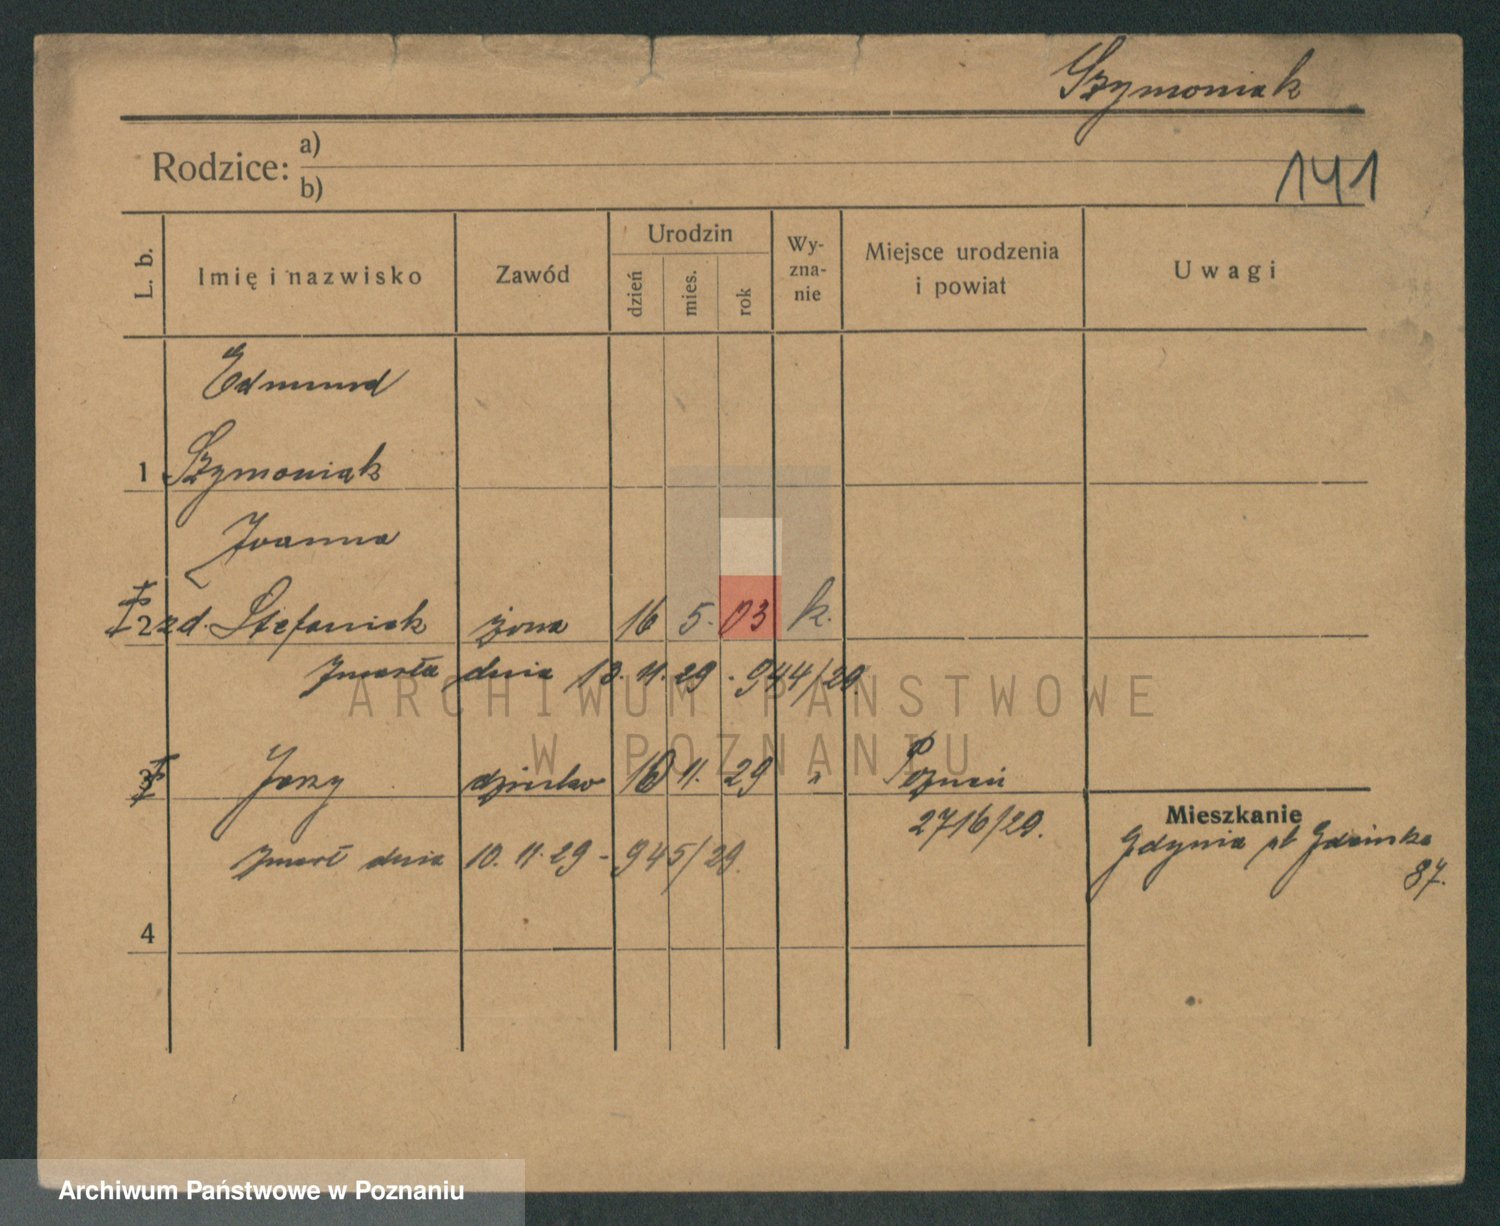 Szymoniak
Rodzice: a)
b)
141
L. b. Imię i nazwisko Zawód Urodzin dzień mies. rok Wy-zna-nie Miejsce urodzenia i powiat Uwagi
Edmund
1 Szymoniak
Joanna
2 zd. Stefaniak żona 16 5. 03 k.
Zmarła dnia 10. 11. 29 - 944/29.
3 Jerzy dziecko 10 11. 29 " Poznań
2716/29.
Mieszkanie
Gdynia ul Gdańska
87.
zmarł dnia 10. 11. 29 - 945/29.
4
ARCHIWUM PAŃSTWOWE
W POZNANIU
Archiwum Państwowe w Poznaniu